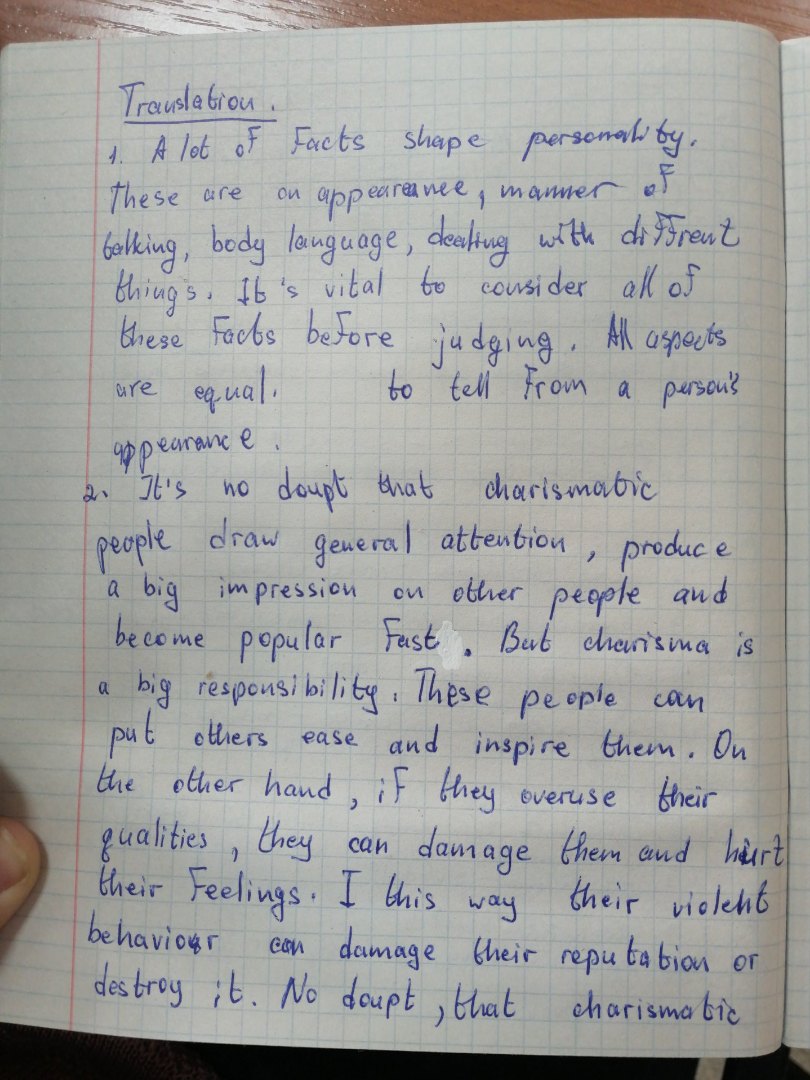 Translation.
1. A lot of Facts shape personality.
These are on appearance, manner of
talking, body language, dealing with diffrent
things. It's vital to consider all of
these Facts before judging. All aspects
are equal. to tell From a person's
appearance.
2. It's no doupt that charismatic
people draw general attention, produce
a big impression on other people and
become popular Fast. But charisma is
a big responsibility. These people can
put others ease and inspire them. On
the other hand, if they overuse their
qualities, they can damage them and hurt
their Feelings. I this way their violent
behaviour can damage their reputation or
destroy it. No doupt, that charismatic